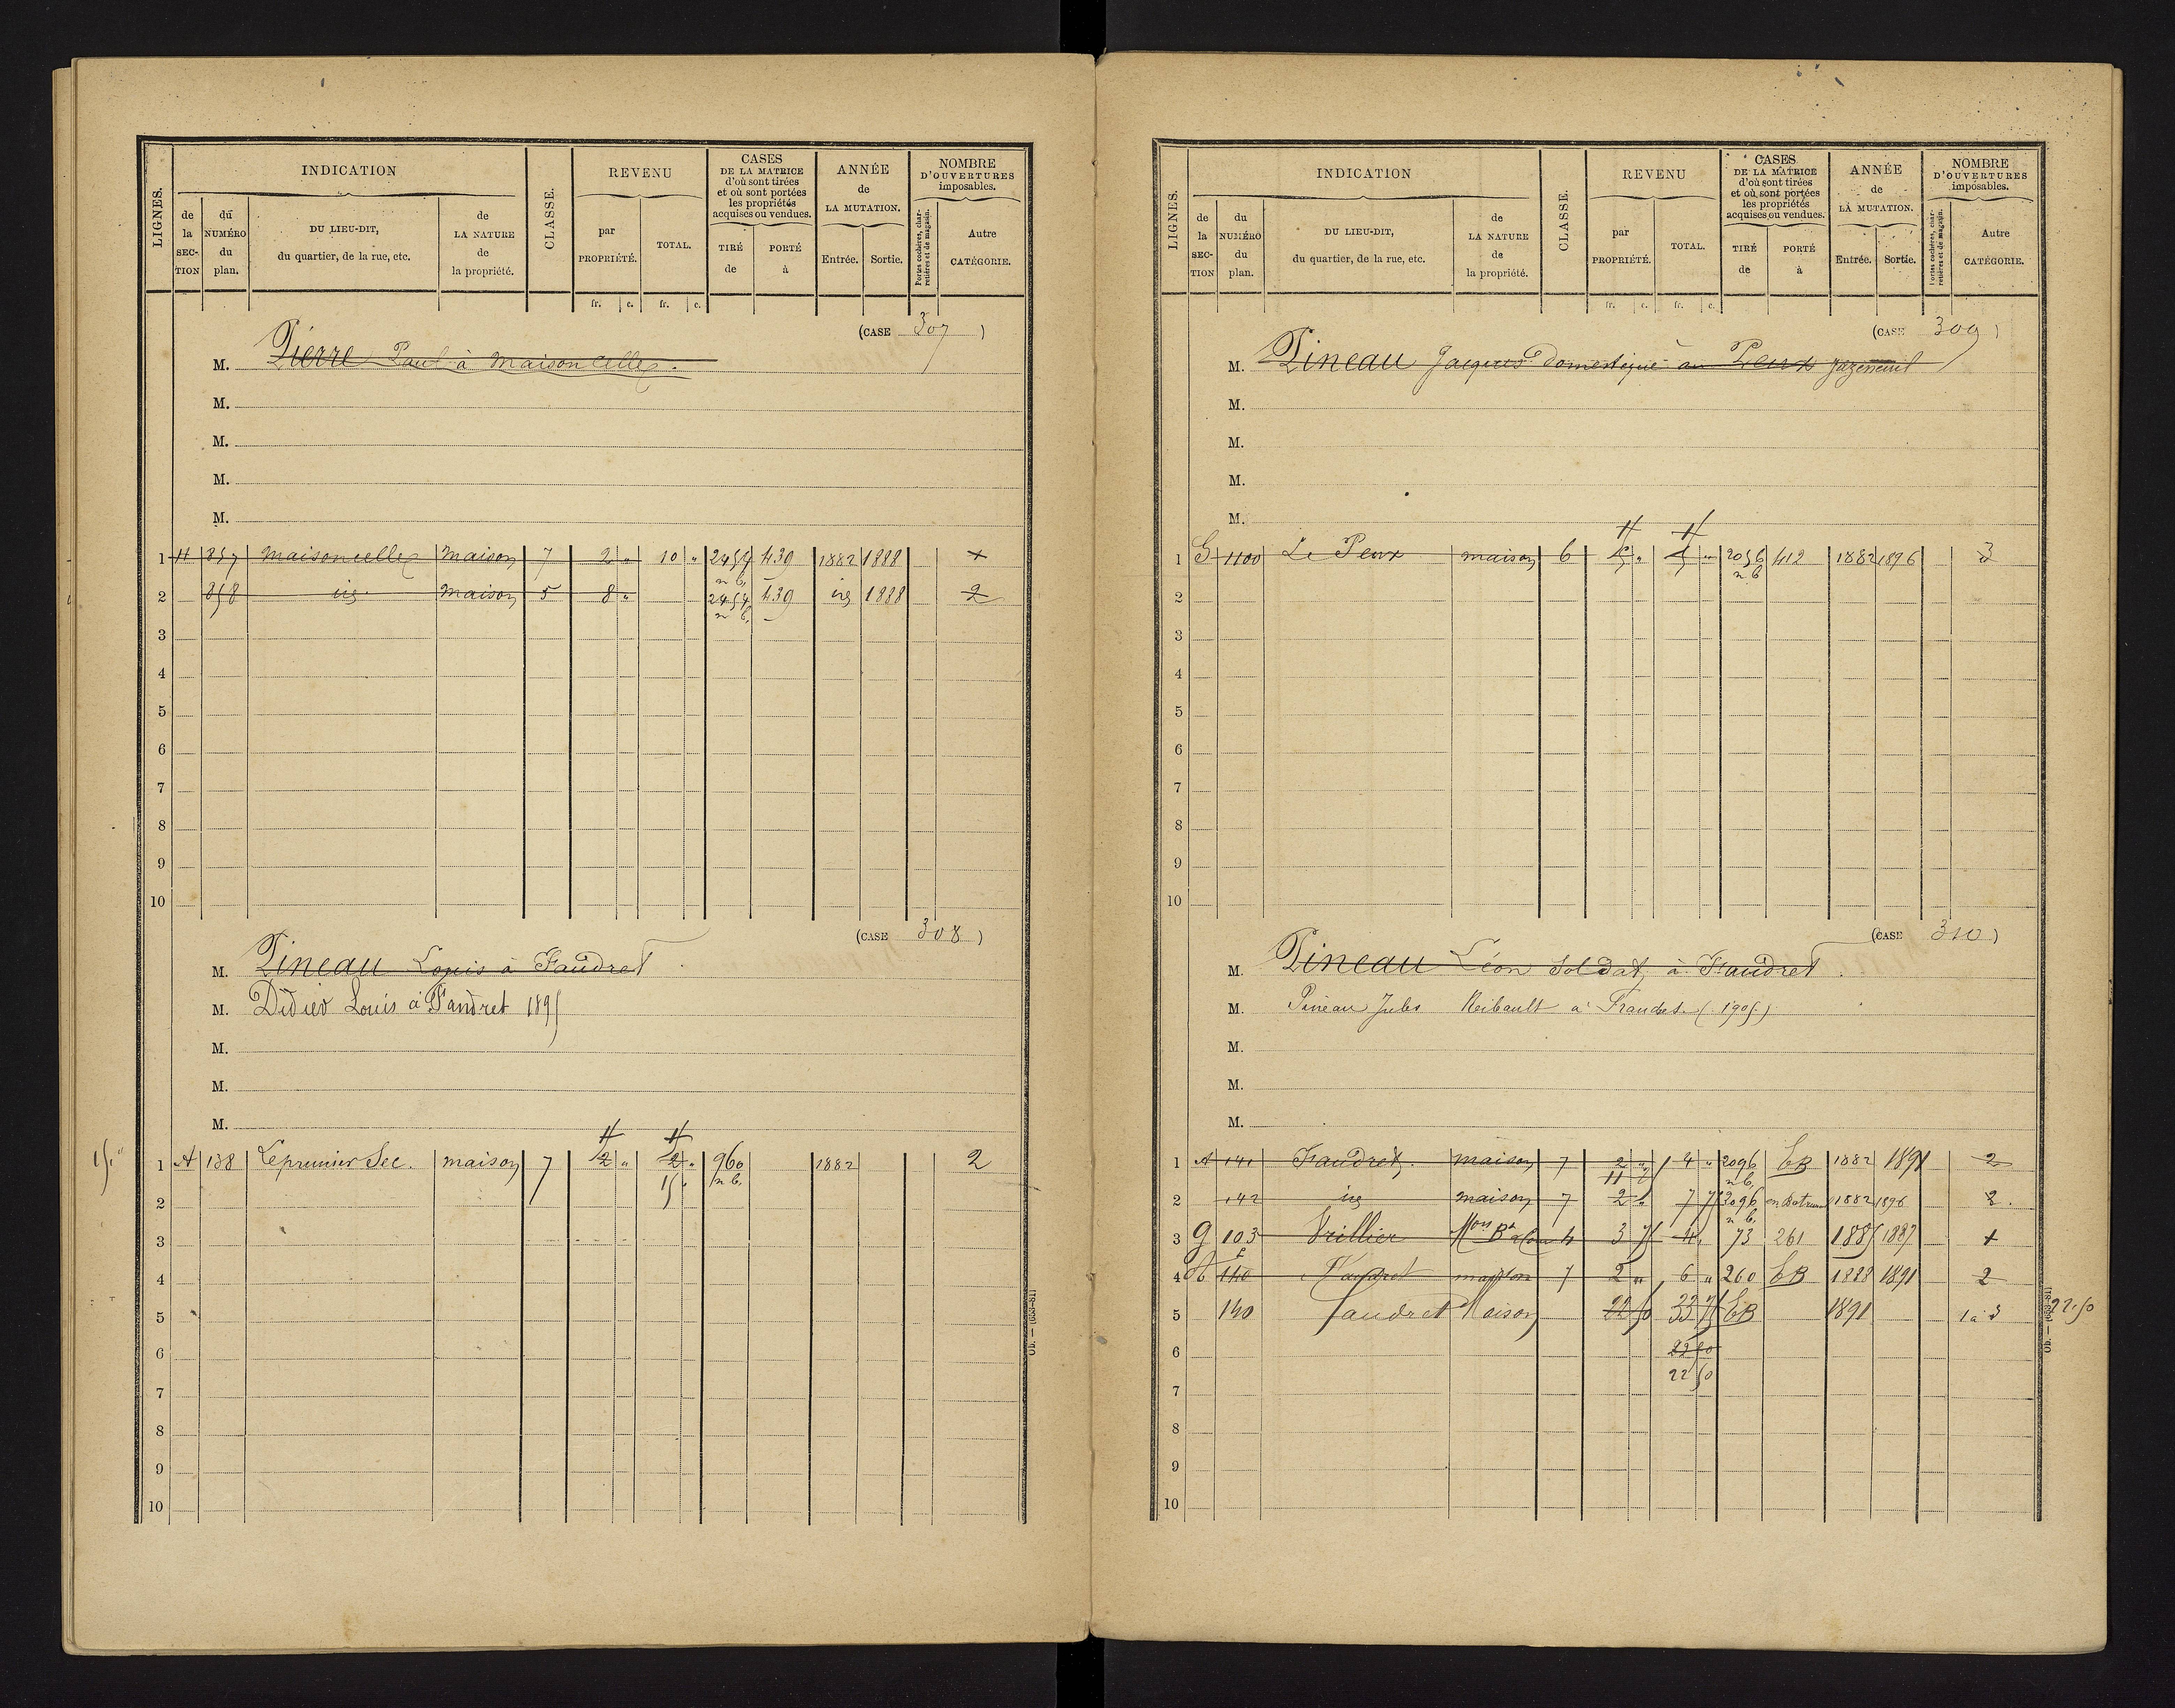 LIGNES.
INDICATION
de la SECTION
du NUMÉRO du plan.
DU LIEU-DIT, du quartier, de la rue, etc.
de LA NATURE de la propriété.
CLASSE.
REVENU
par PROPRIÉTÉ.
TOTAL.
CASES DE LA MATRICE d'où sont tirées et où sont portées les propriétés acquises ou vendues.
TIRÉ de
PORTÉ à
ANNÉE de LA MUTATION.
Entrée.
Sortie.
NOMBRE D'OUVERTURES imposables.
Portes cochères, charretières et de magasin.
Autre CATÉGORIE.
fr. c. fr. c.
(CASE 307)
M. Pierre Paul à Maisoncelles.
M.
M.
M.
M.
1 H 857 Maisoncelles Maison 7 2 " 10 " 2454 439 1882 1888 +
n b.
2 858 id Maison 5 8 " 2454 439 id 1888 2
n b.
3
4
5
6
7
8
9
10
(CASE 308)
M. Pineau Louis à Faudret
M. Didier Louis à Faudret 1895
M.
M.
M.
15 "
1 A 138 Leprunier Sec. maison 7 2 " 2 " 960 1882 2
15 " n b.
2
3
4
5
6
7
8
9
10
Ob. — (653-81)
LIGNES.
INDICATION
de la SECTION
du NUMÉRO du plan.
DU LIEU-DIT, du quartier, de la rue, etc.
de LA NATURE de la propriété.
CLASSE.
REVENU
par PROPRIÉTÉ.
TOTAL.
CASES DE LA MATRICE d'où sont tirées et où sont portées les propriétés acquises ou vendues.
TIRÉ de
PORTÉ à
ANNÉE de LA MUTATION.
Entrée.
Sortie.
NOMBRE D'OUVERTURES imposables.
Portes cochères, charretières et de magasin.
Autre CATÉGORIE.
fr. c. fr. c.
(CASE 309)
M. Pineau Jacques domestique au Peux Jazeneuil
M.
M.
M.
M.
1 G 1100 Le Peux maison 6 5 " 5 " 2056 412 1882 1896 3
n b
2
3
4
5
6
7
8
9
10
(CASE 310)
M. Pineau Léon Soldat, à Faudret.
M. Pineau Jules Reibault à Fraudet (1905)
M.
M.
M.
1 A 141 Faudret. maison 7 2 " 4 " 2096 CB 1882 1891 2
n b.
2 142 id maison 7 2 " 7 75 2096 1882 1896 2.
n b.
3 G 103 Vrillier 4 3 75 4 " 73 261 1885 1887 +
4 A 140 Faudret maison 7 2 " 6 " 260 CB 1888 1891 2
5 140 Faudret Maison 22 50 33 75 CB 1891 1 à 3 22.50
6 22 50
22 50
7
8
9
10
Ob. — (653-81)